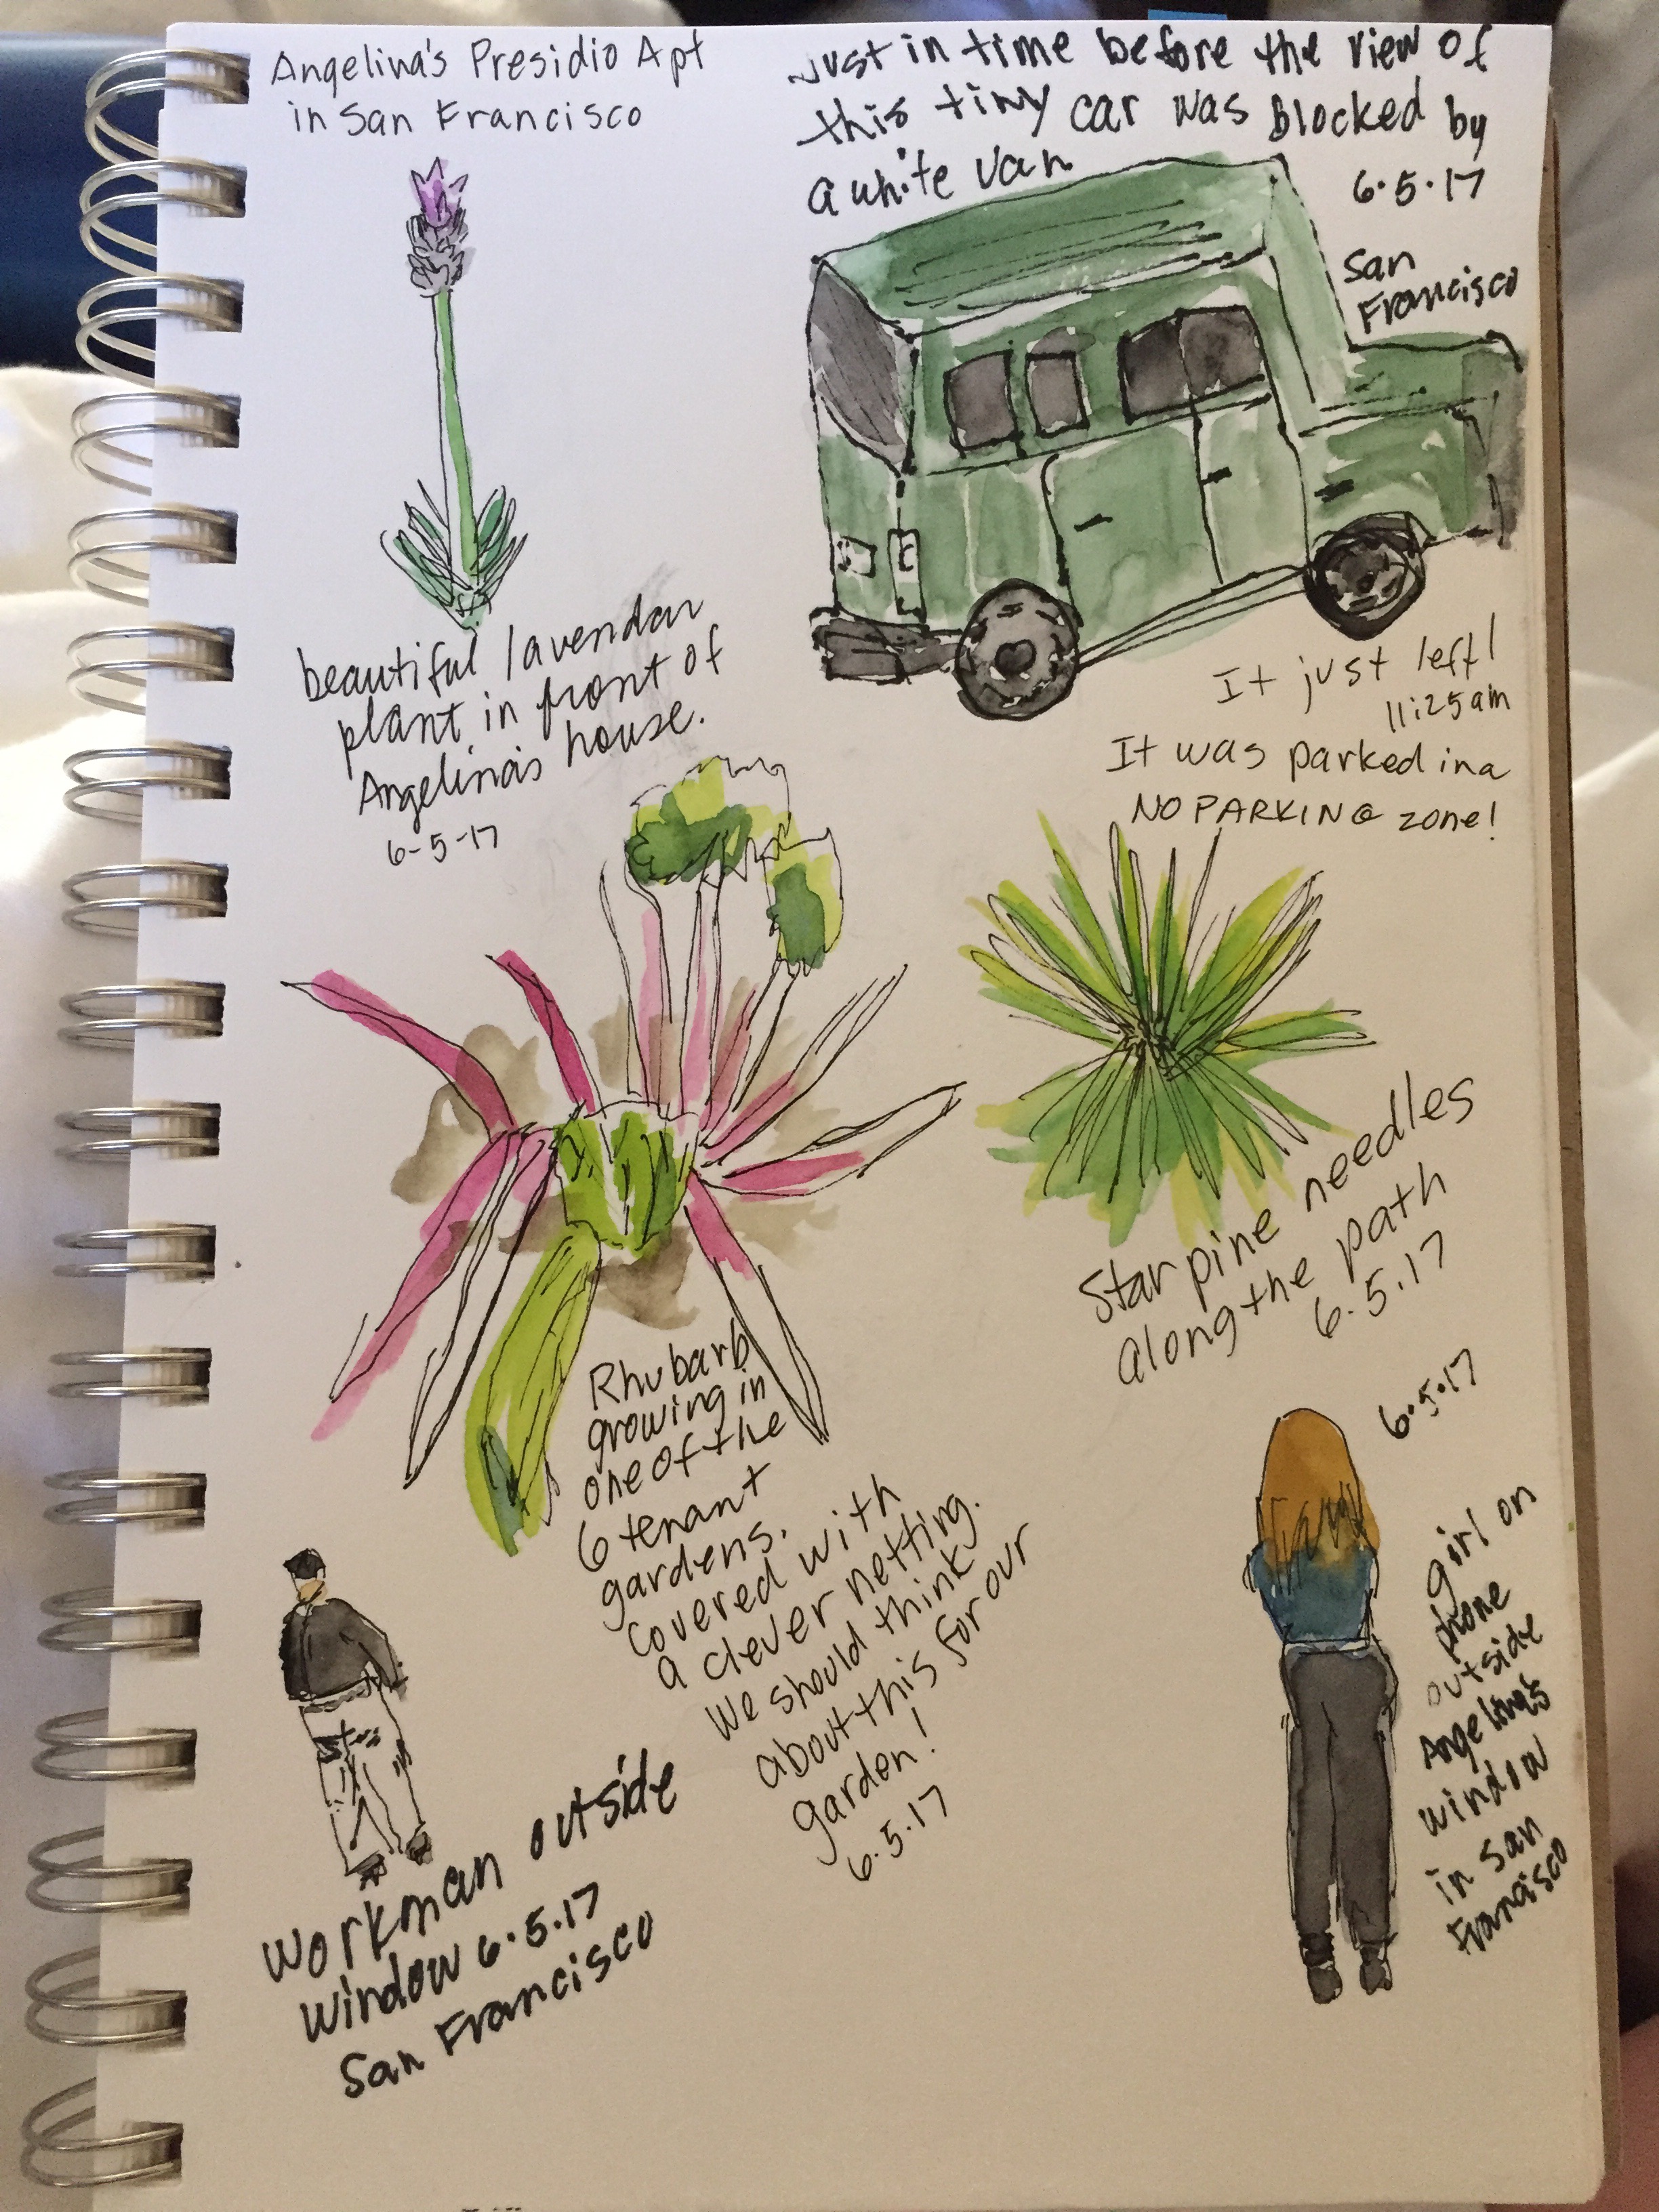 Angelina's Presidio Apt
in San Francisco
Just in time before the view of
this tiny car was Blocked by
a white van
6.5.17
San
Francisco
beautiful lavendar
plant in front of
Angelina's house.
6-5-17
It just left!
11:25am
It was parked in a
NO PARKING zone!
Star pine needles
along the path
6.5.17
Rhubarb
growing in
one of the
6 tenant
gardens.
covered with
a clever netting.
We should think
about this for our
garden!
6.5.17
6.5.17
girl on
phone
outside
Angelina's
window
in San
Francisco
Workman outside
window 6.5.17
San Francisco